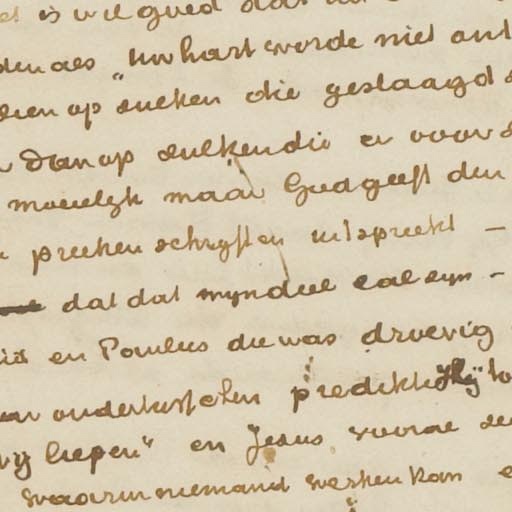 is wel goed dat
den als "Uw hart worde niet ont
zien op zulken die geslaagd
dan op zulken die er voor
moeielyk maar God geeft den
preeken schryft en uitspreekt —
dat dat myn deel zal zyn -
en Paulus die was droevig
ondertusschen predikte hy
wy liepen" en Jesus voorae
waarin niemand werken kan